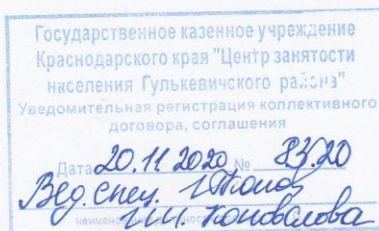 Государственное казенное учреждение
Краснодарского края "Центр занятости
населения Гулькевичского района"
Уведомительная регистрация коллективного
договора, соглашения
Дата 20.11.2020 № 83.20
Вед. спец.
Коновалова